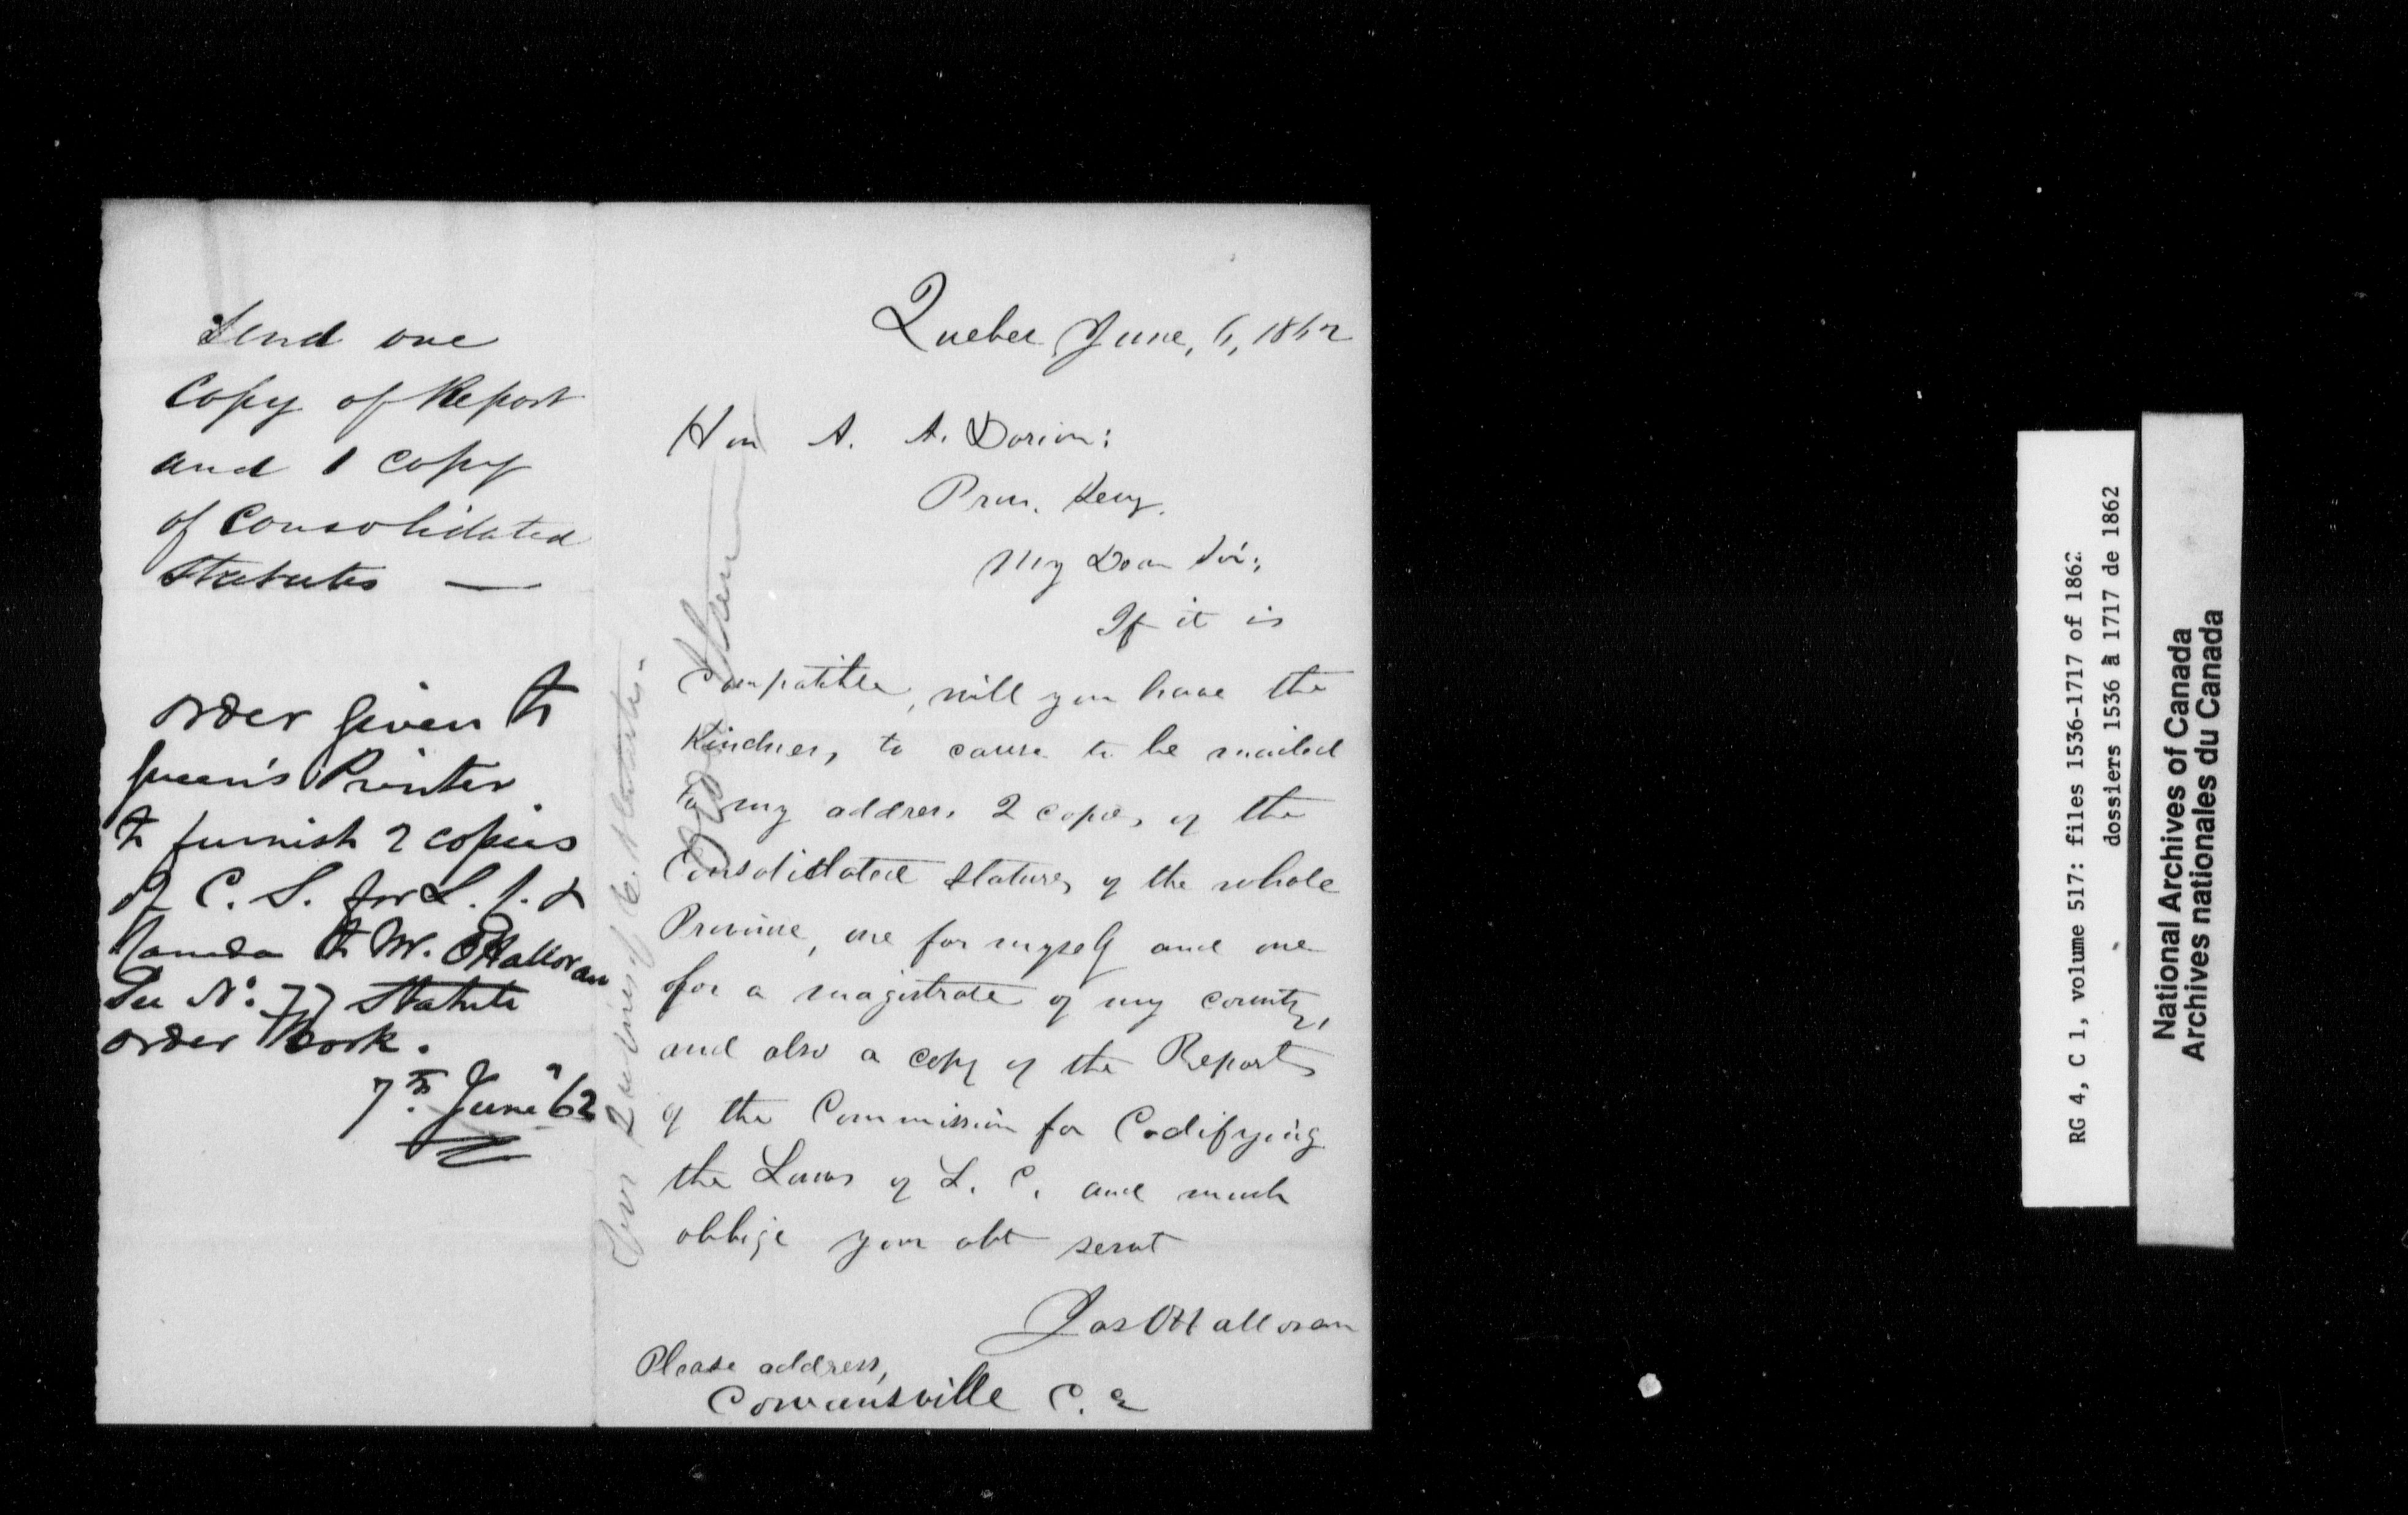 Send one
Copy of Report
and 1 copy
of Consolidated
Statutes —
Order given to
Queen's Printer
to furnish 2 copies
of C. S. for L. C. &
Canada to Mr. O'Halloran
See No: 77 Statute
Order Book.
7th June "62
Quebec June, 6, 1862
Hon A. A. Dorion:
Prov. Secy.
My Dear Sir:,
If it is
Compatible, will you have the
Kindness, to cause to be mailed
to my address 2 copies of the
Consolidated Statutes of the whole
Province, one for myself and one
for a magistrate of my county,
and also a copy of the Reports
of the Commission for Codifying
the Laws of L. C. and much
oblige your obt servt
Jas O'Halloran
Please address,
Cowansville C. E
RG 4, C 1, volume 517: files 1536-1717 of 1862
dossiers 1536 à 1717 de 1862
National Archives of Canada
Archives nationales du Canada